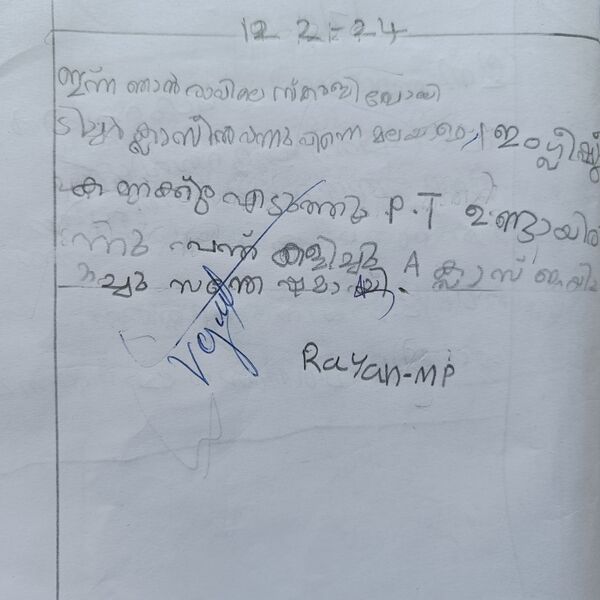 12 2-24
ഇന്ന് ഞാൻ രാവിലെ സ്കൂളി പോയി
ടിച്ചർ ക്ലാസിൽ വന്നു എന്നെ മലയാളം, ഇംഗ്ലീഷ്
കണക്കും എടുത്തു P.T ഉണ്ടായിരു
ന്നു പന്ത് കളിച്ചു A ക്ലാസ്
ച്ചു സന്തോഷമായി.
RaYan-MP